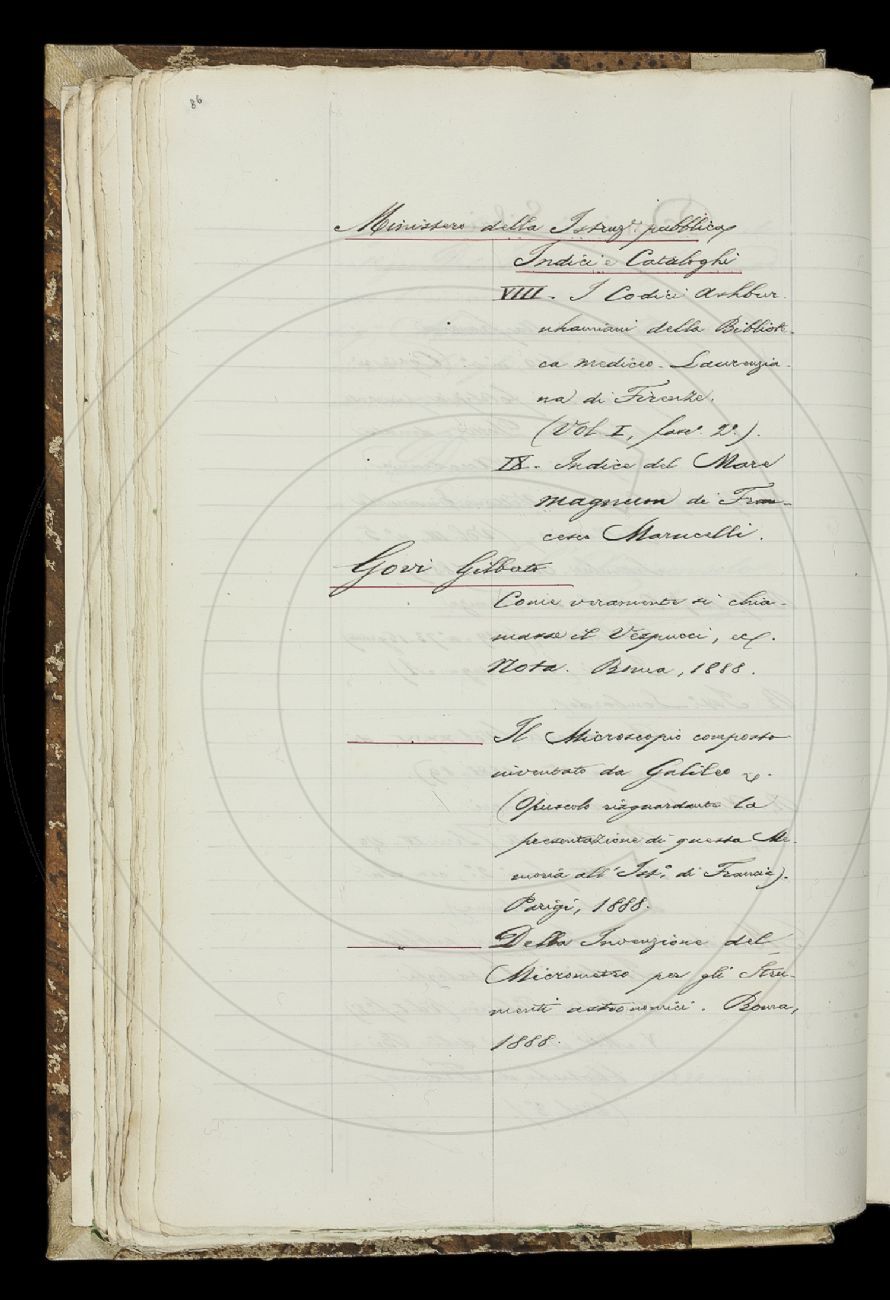 86
Ministero della Istruz.e pubblica
Indici e Cataloghi
VIII - I Codici Ashbur-
nhamiani della Bibliote-
ca mediceo-Laurenzia-
na di Firenze.
(Vol. I, fasc. 2º).
IX - Indice del Mare
magnum di Fran-
cesco Marucelli.
Govi Gilberto
Come veramente si chia-
masse il Vespucci, ecc.
Nota. Roma, 1888.
Il Microscopio composto
inventato da Galileo
(Opuscolo riguardante la
presentazione di questa Me-
moria all'Ist.º di Francia).
Parigi, 1888.
Della Invenzione del
Micrometro per gli Stru-
menti astronomici. Roma,
1888.